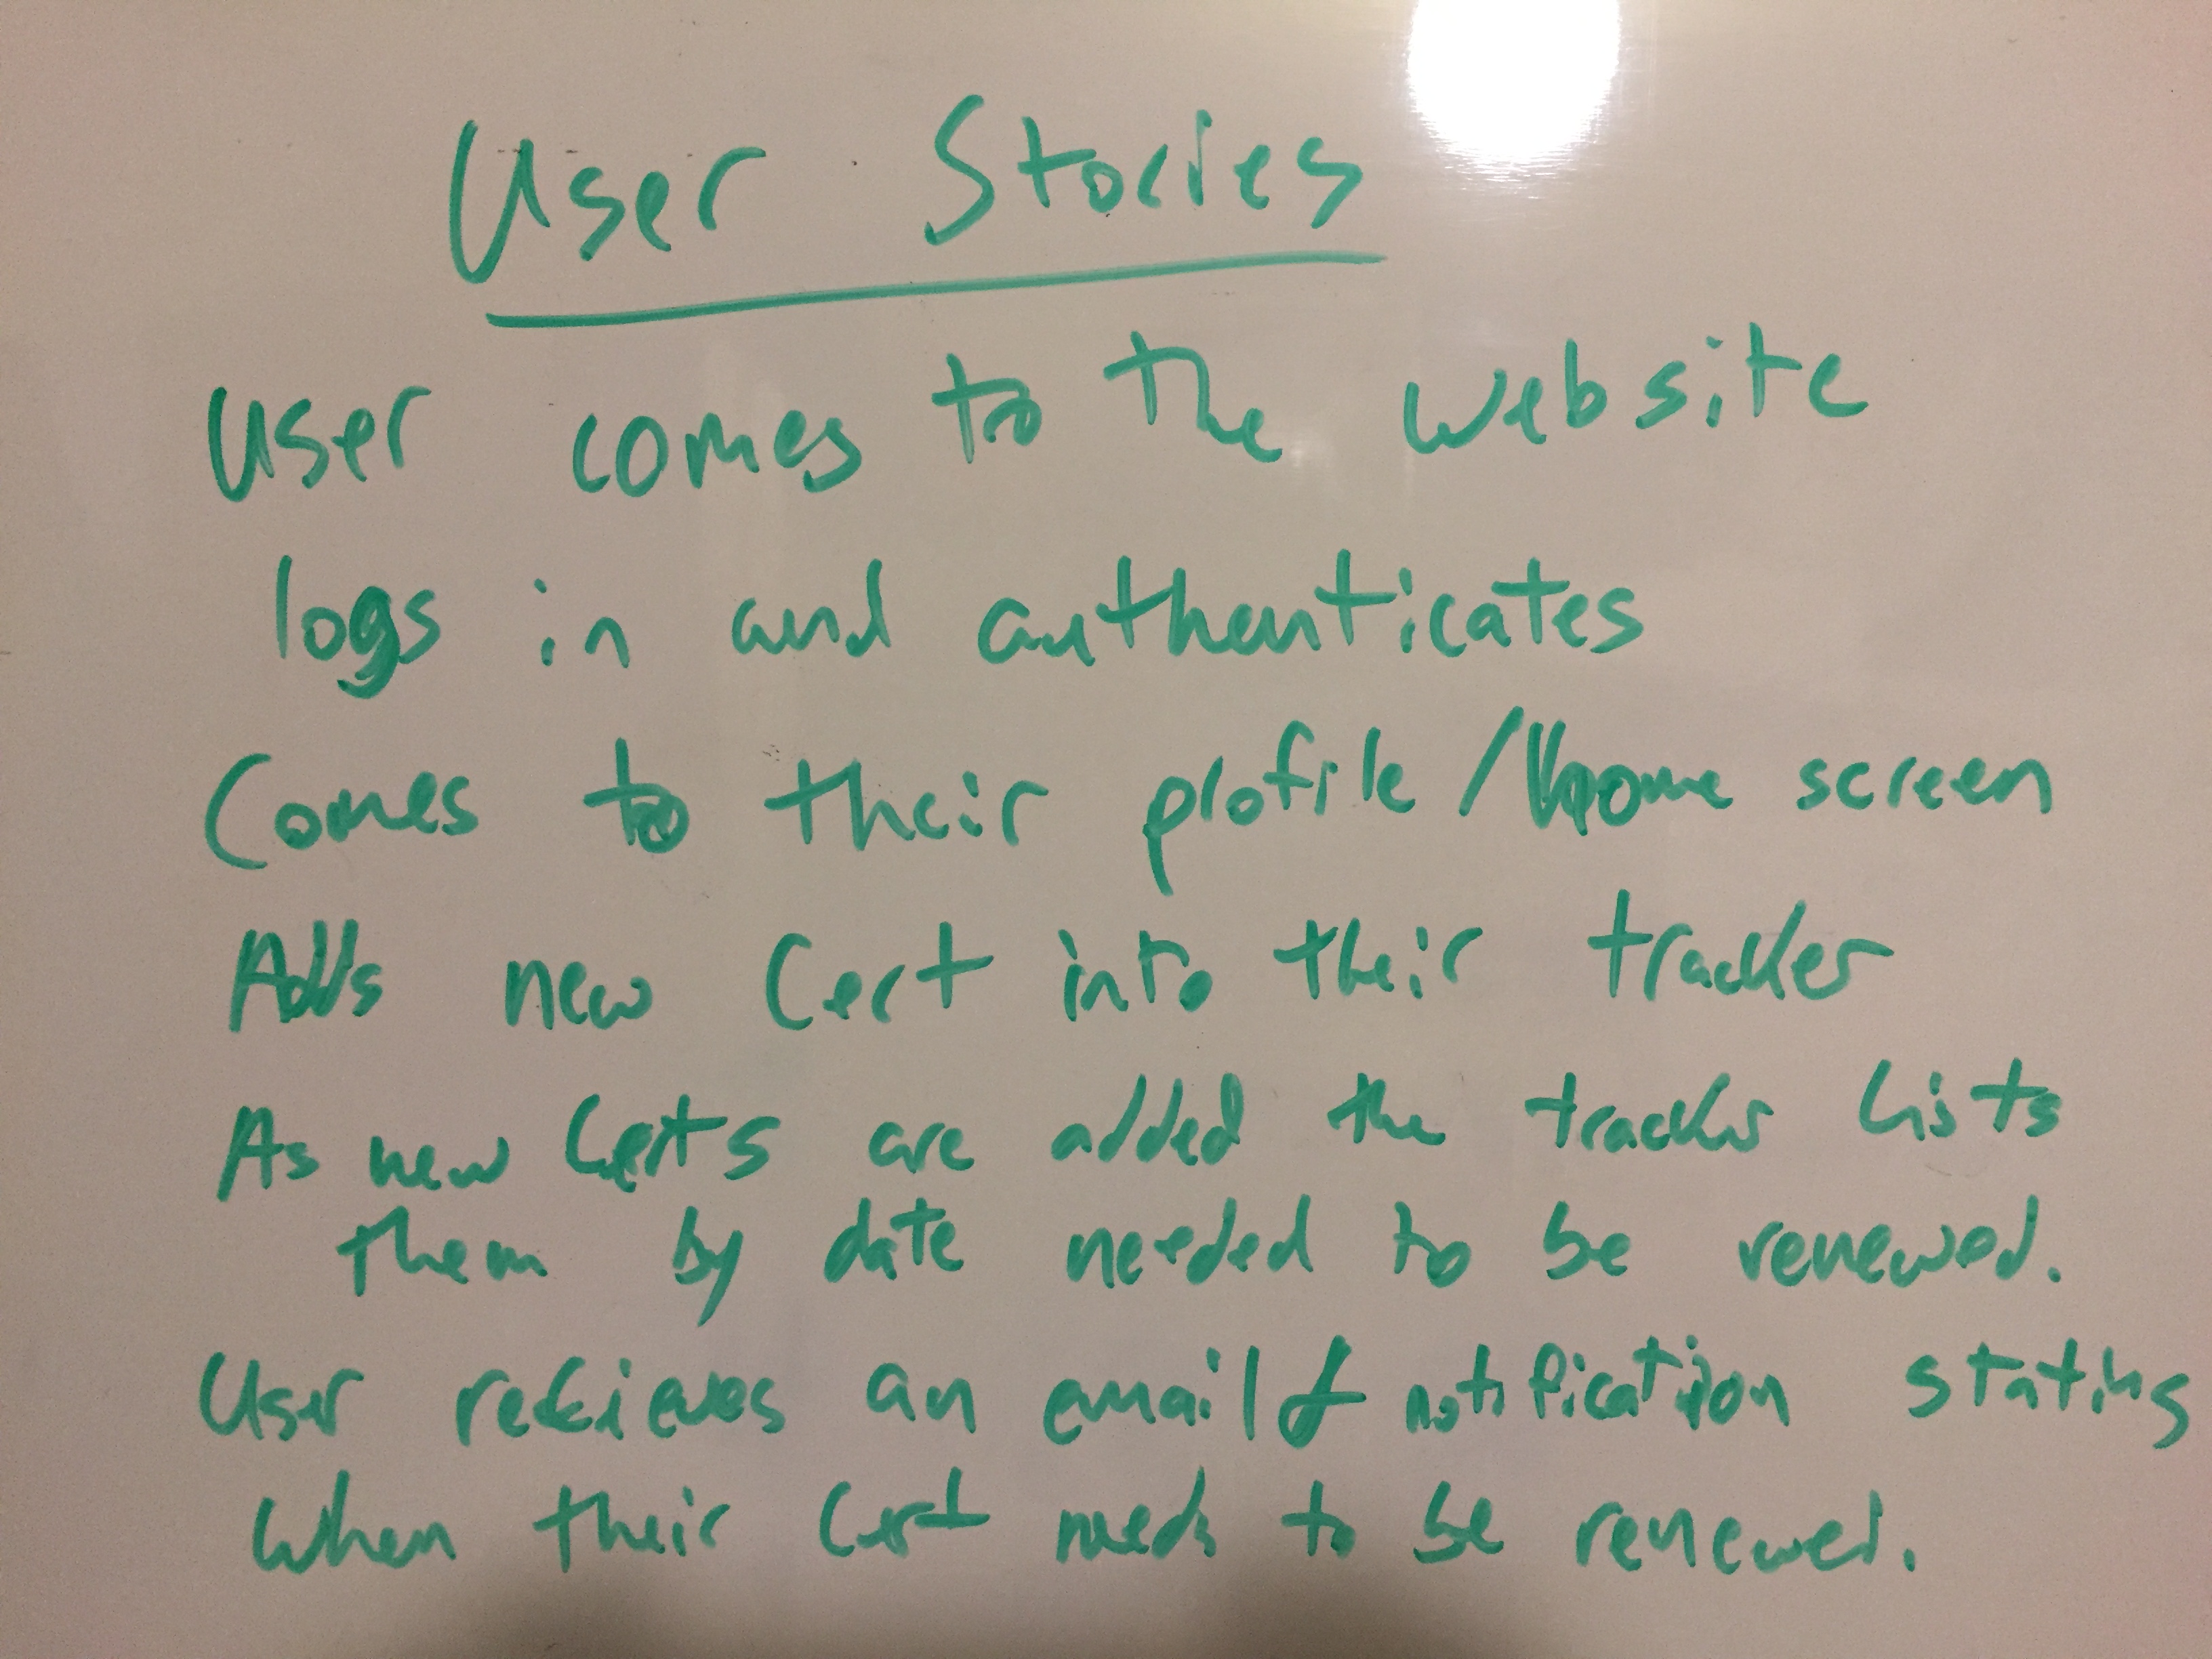 User Stories
User comes to the website
logs in and authenticates
Comes to their profile / home screen
Adds new Cert into their tracker
As new Certs are added the tracker lists
them by date needed to be renewed.
User recieves an email & notification stating
when their Cert needs to be renewed.